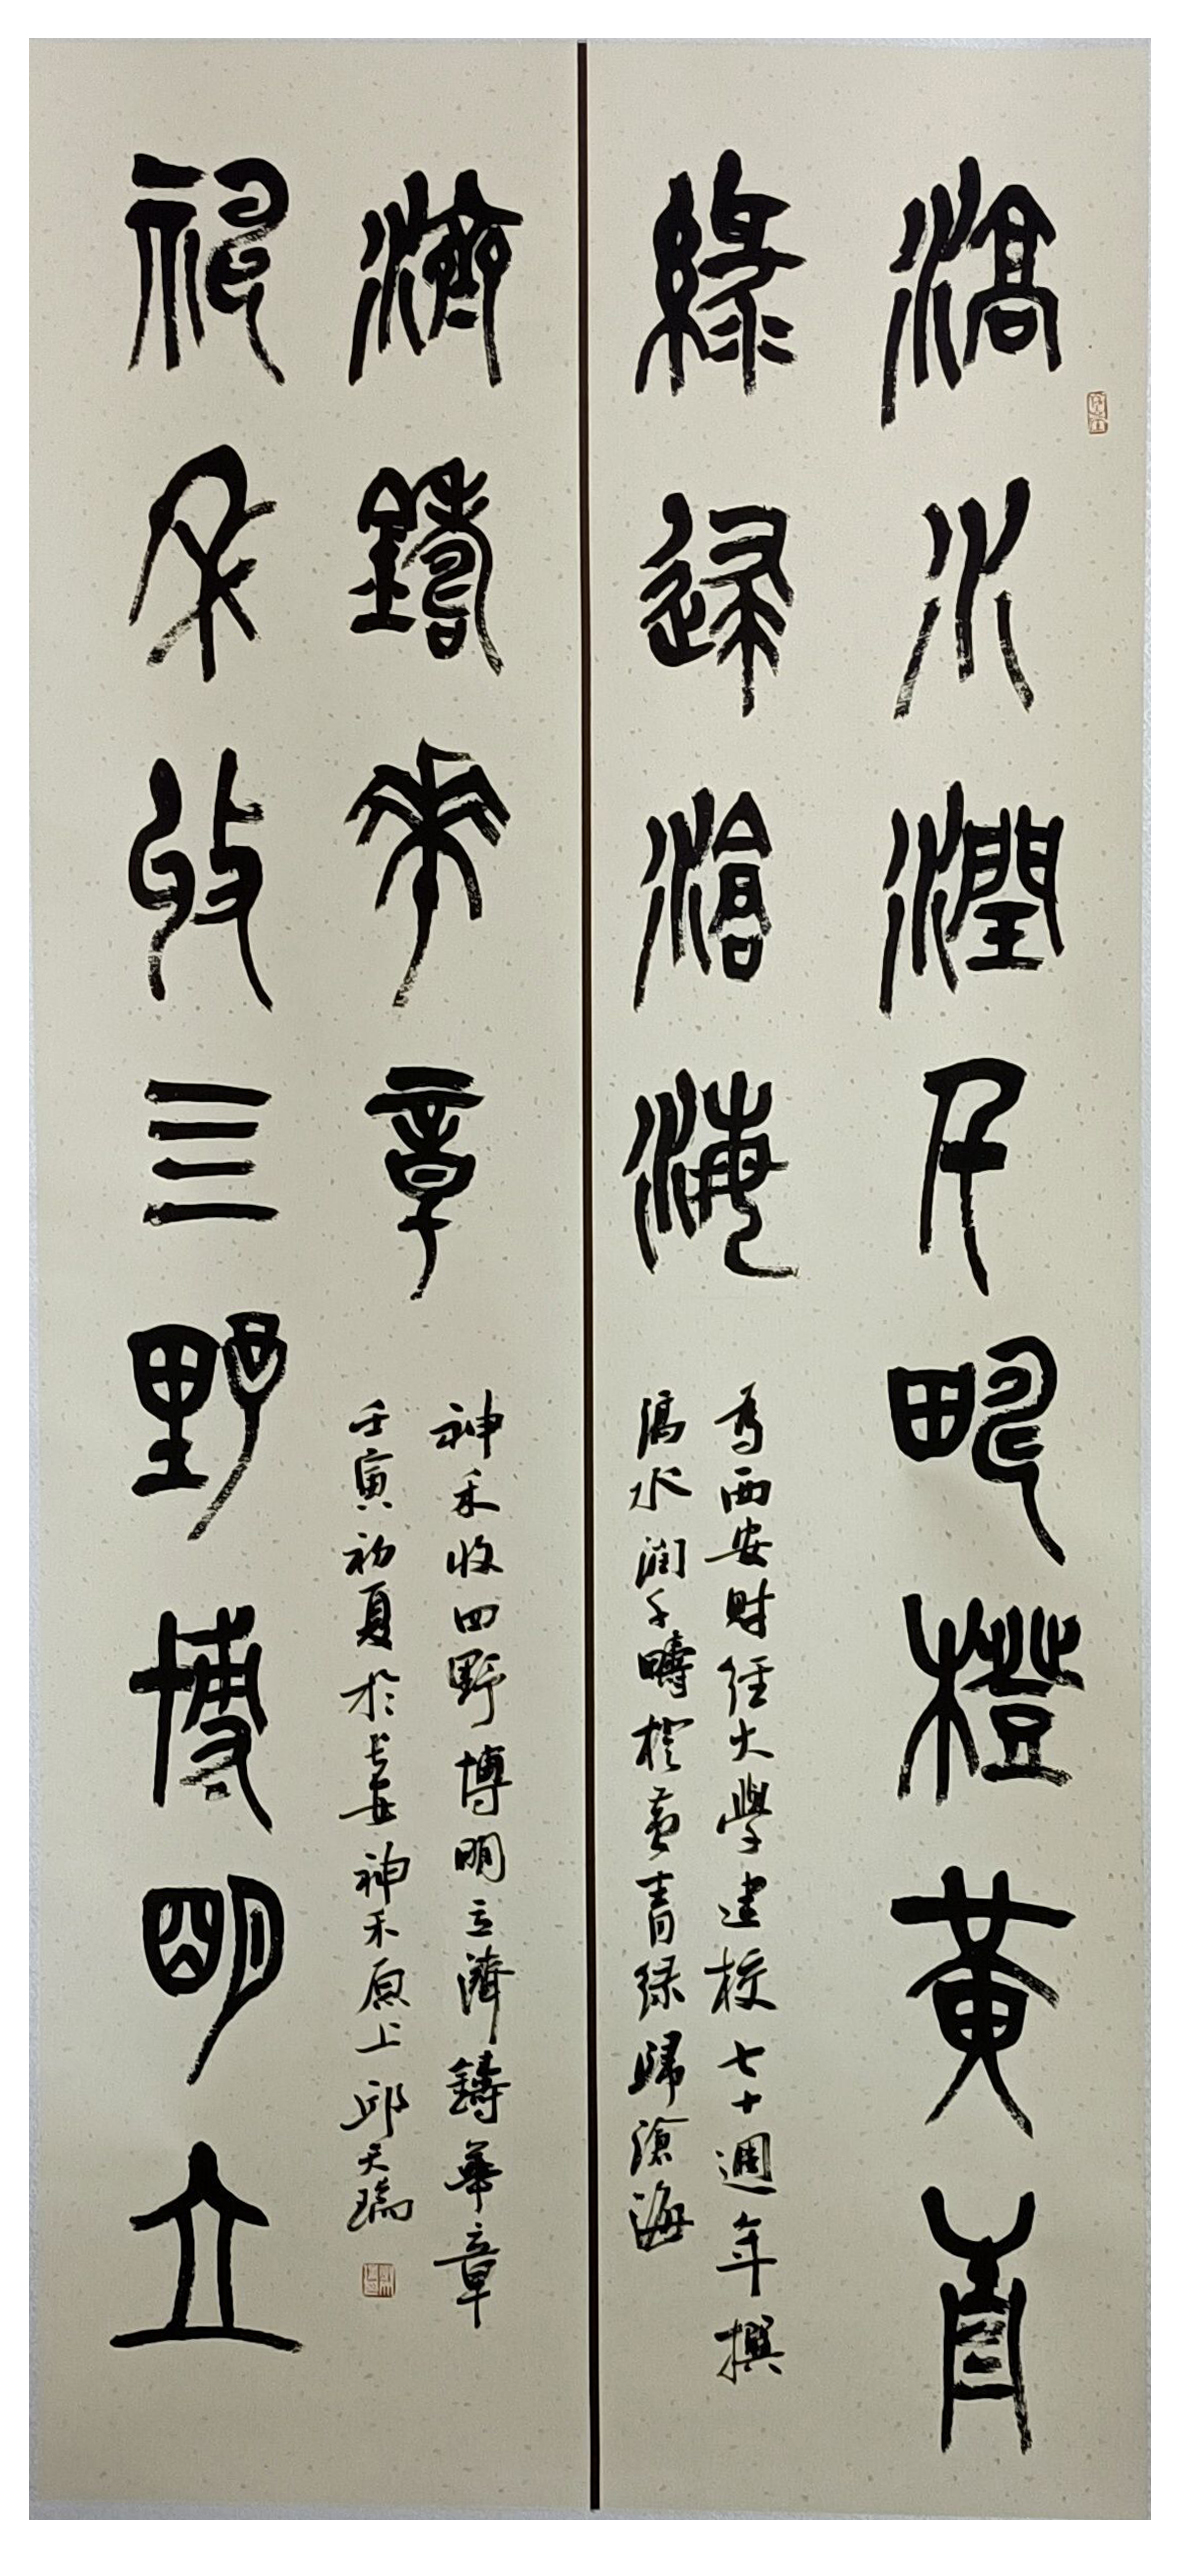 滈水潤千疇橙黃青
綠歸滄海
為西安財經大學建校七十週年撰
滈水潤千疇橙黃青綠歸滄海
神禾收四野博明立
濟鑄華章
神禾收四野博明立濟鑄華章
壬寅初夏於長安神禾原上邱天瑞